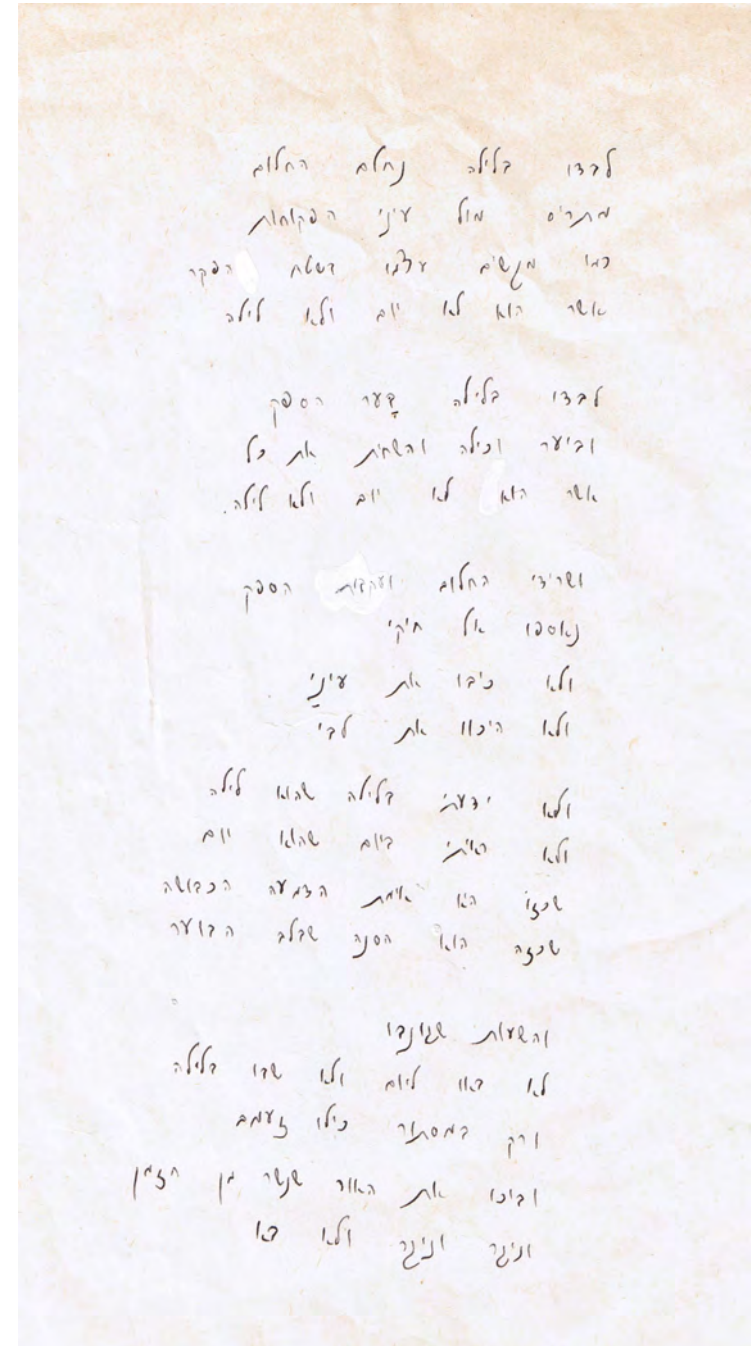 לבדו בלילה נחלם החלום
מתריס מול עיני הפקוחות
כמו מגשים עצמו בשטח הפקר
אשר הוא לא יום ולא לילה
לבדו בלילה בָּער הספק
וביער וכילה והשחית את כל
אשר הוא לא יום ולא לילה.
ושרידי החלום ועקבות הספק
נאספו אל חיקי
ולא כיבו את עינַי
ולא היכוו את לבי
ולא ידעתי בלילה שהוא לילה
ולא ראיתי ביום שהוא יום
שכזוֹ היא אימת הדמעה הכבושה
שכזה הוא הסנה שבלב הבוער
והשעות שנגנבו
לא באו ליום ולא שבו בלילה
ורק במסתור כילו זעמם
וביכו את האור שנשר מן הזמן
וניגר וניגר ולא בא